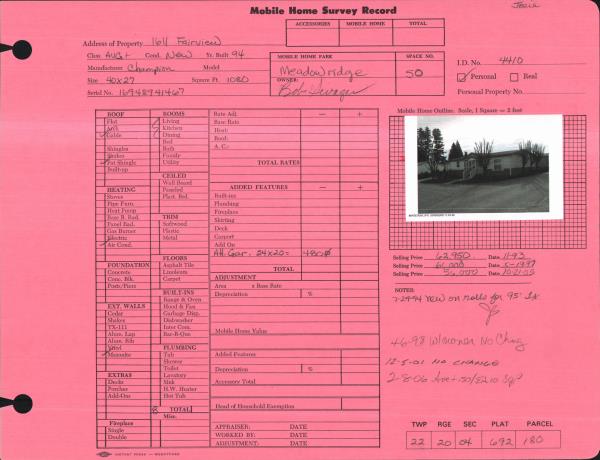 Mobile Home Survey Record
ACCESSORIES MOBILE HOME TOTAL
Address of Property 1611 Fairview
Class AVG+ Cond. New Yr. Built 94
Manufacturer Champion Model
Size 40x27 Square Ft. 1080
Serial No. 16948941467
MOBILE HOME PARK SPACE NO.
Meadowridge 50
OWNER:
Bob
I.D. No. 4410
Personal Real
Personal Property No.
ROOF
Flat
Arch
Gable
Shingles
Shakes
Fat Shingle
Built-up
HEATING
Stoves
Pipe Furn.
Heat Pump
Base B. Rad.
Panel Rad.
Gas Burner
Electric
Air Cond.
FOUNDATION
Concrete
Conc. Blk.
Posts/Piers
EXT. WALLS
Cedar
Shakes
TX-111
Alum. Lap
Alum. Rib
Vinyl
Masonite
EXTRAS
Decks
Porches
Add-Ons
Fireplace
Single
Double
ROOMS
Living
Kitchen
Dining
Bed
Bath
Family
Utility
CEILED
Wall Board
Paneled
Plast. Brd.
TRIM
Softwood
Plastic
Metal
FLOORS
Asphalt Tile
Linoleum
Carpet
BUILT-INS
Range & Oven
Hood & Fan
Garbage Disp.
Dishwasher
Inter Com.
Bar-B-Que
PLUMBING
Tub
Shower
Toilet
Lavatory
Sink
H.W. Heater
Hot Tub
8 TOTAL
Misc.
Rate Adj. — +
Base Rate
Heat:
Roof:
A. C.:
TOTAL RATES
ADDED FEATURES — +
Built-ins
Plumbing
Fireplace
Skirting
Deck
Carport
Add On
Att. Gar. 24x20=
TOTAL
ADJUSTMENT
Area x Base Rate
Depreciation %
Mobile Home Value
Added Features
Depreciation %
Accessory Total
Head of Household Exemption
APPRAISER: DATE
WORKED BY: DATE
ADJUSTMENT: DATE
Mobile Home Outline. Scale, 1 Square = 2 feet
Selling Price 62,950 Date 11-93
Selling Price 61,000 Date 5-1997
Selling Price 56,000 Date 10-21-05
NOTES:
7-29-94 New on rolls for 95
4-6-98
12-5-01 NO CHANGE
2-8-06
TWP RGE SEC PLAT PARCEL
22 20 04 692 180